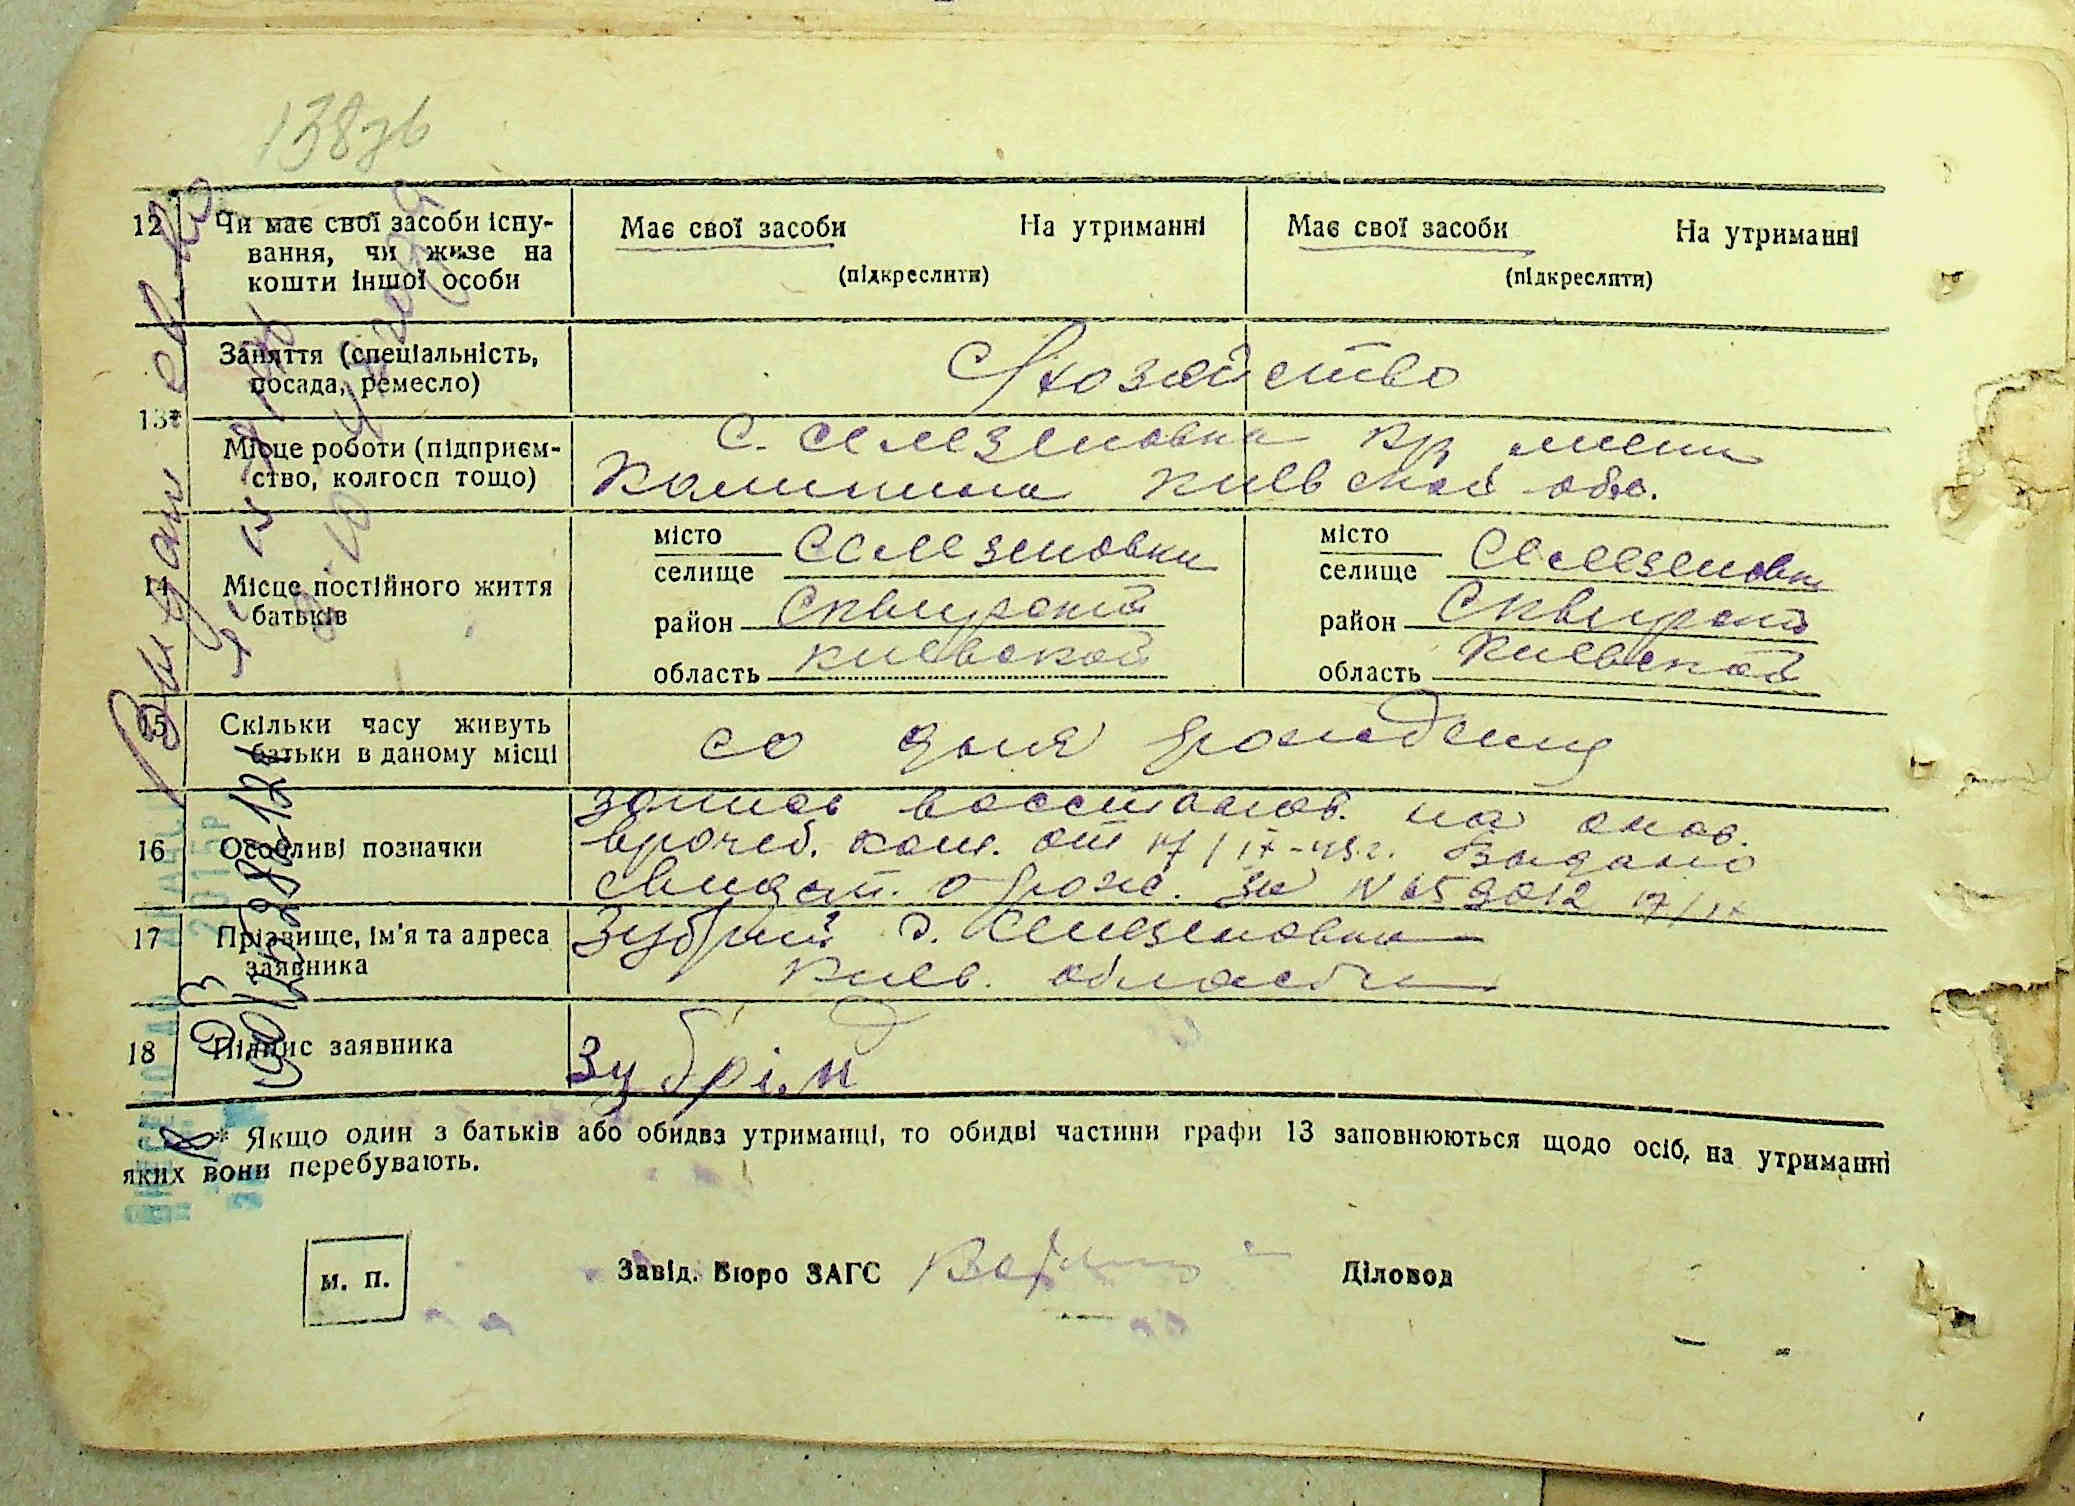 138зв
12 Чи має свої засоби існу- Має свої засоби На утриманні Має свої засоби На утриманні
вання, чи живе на
кошти іншої особи (підкреслити) (підкреслити)
Заняття (спеціальність, С/хозяйство
посада, ремесло)
13*
Місце роботи (підприєм- с. Селезеновка имени
ство, колгосп тощо) Калинина Киевской обл.
14 Місце постійного життя
батьків
місто
селище Селезеновки
район Сквирский
область Киевской
місто
селище Селезеновки
район Сквирский
область Киевской
15 Скільки часу живуть со дня рождения
батьки в даному місці
16 Особливі позначки
запись восстанов. на основ.
врачеб. ком. от 17/IX-45 г. Выдано
свидет. о рожд. за № 659012 17/IX
17 Прізвище, ім'я та адреса
заявника
Зубрий с. Селезеновка
Киев. области
18 Підпис заявника Зубрій
* Якщо один з батьків або обидва утриманці, то обидві частини графи 13 заповнюються щодо осіб, на утриманні
яких вони перебувають.
м. п. Завід. Бюро ЗАГС Діловод
Видано св-во